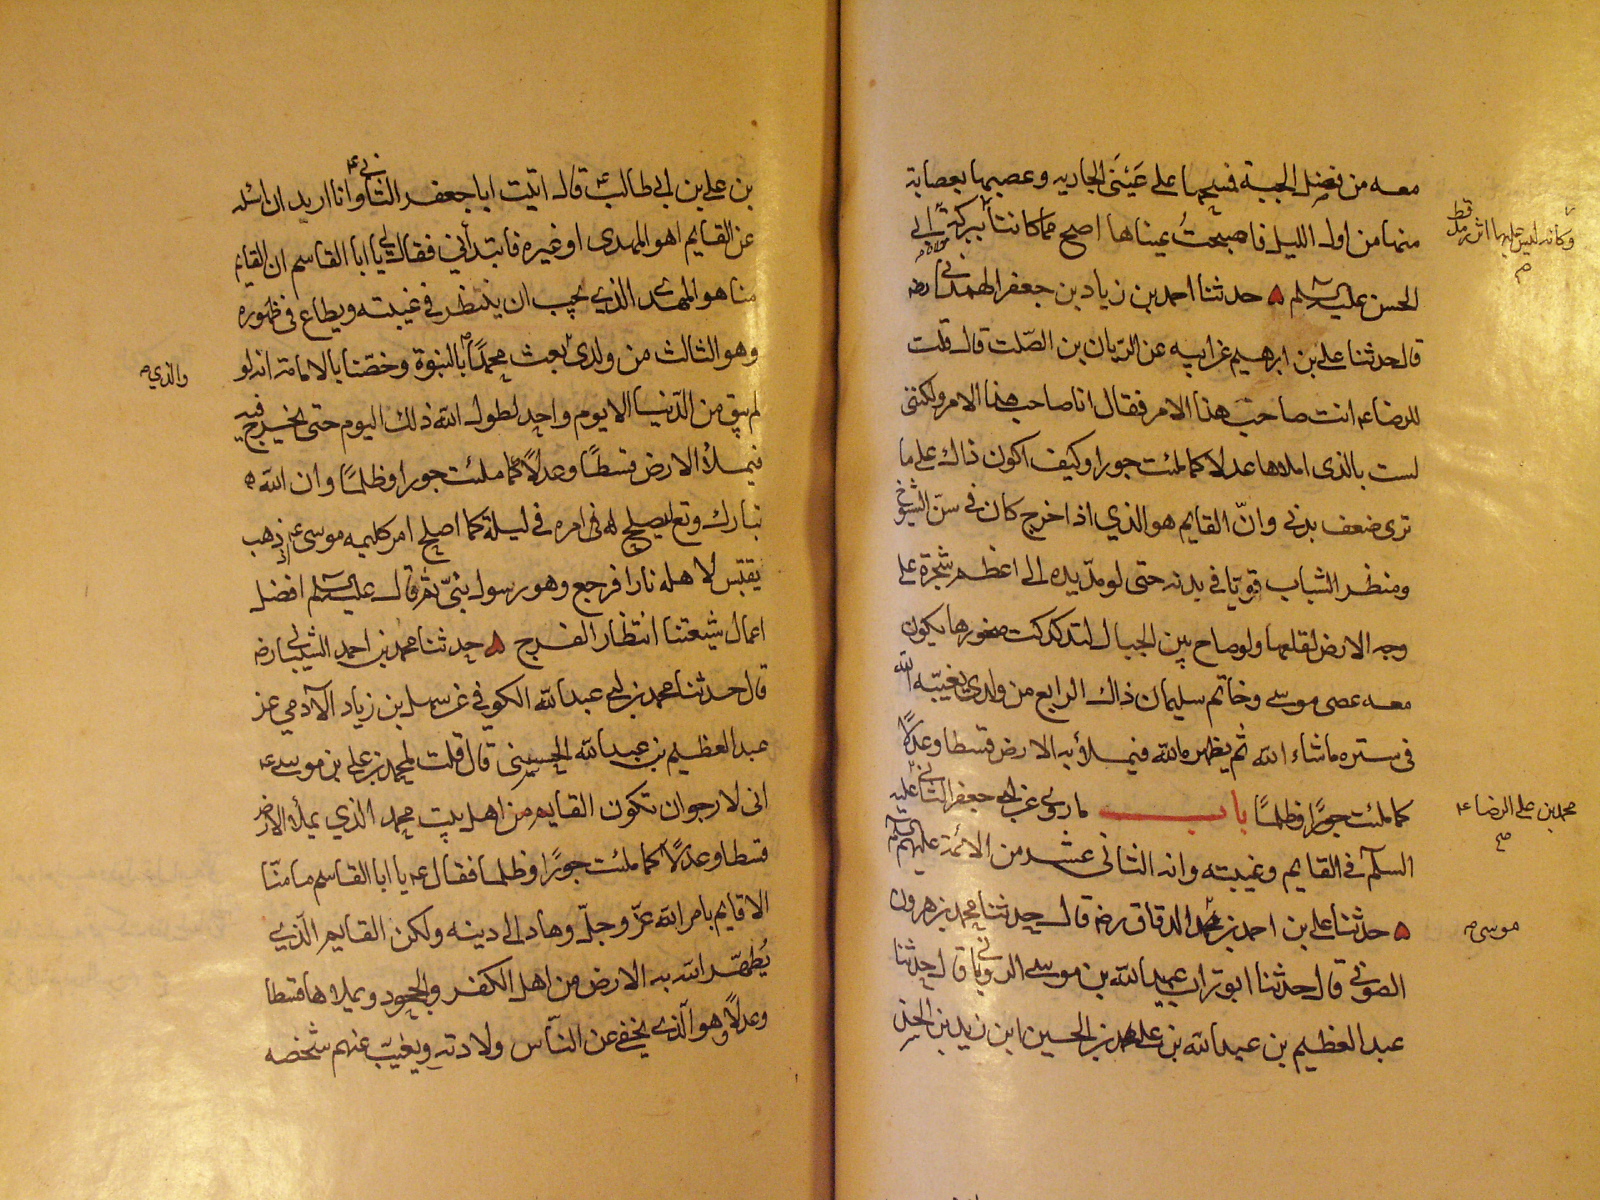 معه من فضل الجبة فمسحها على عيني الجاريه وعصبها بعصابة
منها من اول الليل فاصبحت عيناها اصح مما كانتا ببركة ابى
وكانه ليس عليها اثر رمد قط
الحسن عليه السلم حدثنا احمد بن زياد بن جعفر الهمداني رضه
قال حدثنا على بن ابرهيم عن ابيه عن الريان بن الصلت قال قلت
للرضا ع انت صاحب هذا الامر فقال انا صاحب هذا الامر ولكننى
لست بالذى املاها عدلا كما ملئت جورا وكيف اكون ذاك على ما
ترى ضعف بدنى وانّ القايم هو الذي اذا خرج كان في سنّ الشيوخ
ومنظر الشباب قويّا في بدنه حتى لو مدّ يده الى اعظم شجرة على
وجه الارض لقلعها ولو صاح بين الجبال لتدكدكت صخورها يكون
معه عصى موسى وخاتم سليمان ذاك الرابع من ولدى يغيّبه الله
فى ستره ما شاء الله ثم يظهره الله فيملأ به الارض قسطا وعدلًا
كما ملئت جورًا وظلمًا باب ما روى عن ابى جعفر الثانى عليه
محمد بن على الرضا ع
صح
السلم في القايم وغيبته وانه الثانى عشر من الائمة عليهم السلم
حدثنا على بن احمد بن محمد الدقاق رضه قال حدثنا محمد بن هرون
موسى
الصوفى قال حدثنا ابو تراب عبيد الله بن موسى الرويانى قال حدثنا
عبد العظيم بن عبد الله بن على بن الحسين ابن زيد بن الحسن
بن على بن ابى طالب ع قال اتيت ابا جعفر الثانى ع وانا اريد ان اسئله
عن القايم اهو المهدى او غيره فابتدأني فقال لى يا ابا القاسم ان القايم
منا هو المهدى الذي يجب ان ينتظر في غيبته ويطاع فى ظهوره
وهو الثالث من ولدى بعث محمدًا بالنبوة وخصّنا بالامامة انه لو
والذي
لم يبق من الدّنيا الا يوم واحد لطول الله ذلك اليوم حتى يخرج فيه
فيملأ الارض قسطًا وعدلًا كما ملئت جورا وظلمًا وان الله
تبارك وتع ليصلح له فى امره في ليلة كما اصلح امر كليمه موسى ع اذ ذهب
يقتبس لاهله نارا فرجع وهو رسول نبىّ ثم قال عليه السلم افضل
اعمال شيعتنا انتظار الفرج حدثنا محمد بن احمد الشيبانى رضه
قال حدثنا محمد بن ابى عبد الله الكوفي عن سهل بن زياد الآدمي عن
عبد العظيم بن عبد الله الحسينى قال قلت لمحمد بن على بن موسى ع
انى لارجو ان تكون القايم من اهل بيت محمد الذي يملأ الارض
قسطا وعدلا كما ملئت جورًا وظلما فقال ع يا ابا القاسم ما منّا
الا قايم بامر الله عزّ وجلّ وهاد الى دينه ولكن القايم الّذي
يُطهّر الله به الارض من اهل الكفر والجحود ويملاها قسطا
وعدلًا وهو الّذى يخفى عن النّاس ولادته ويغيّب عنهم شخصه